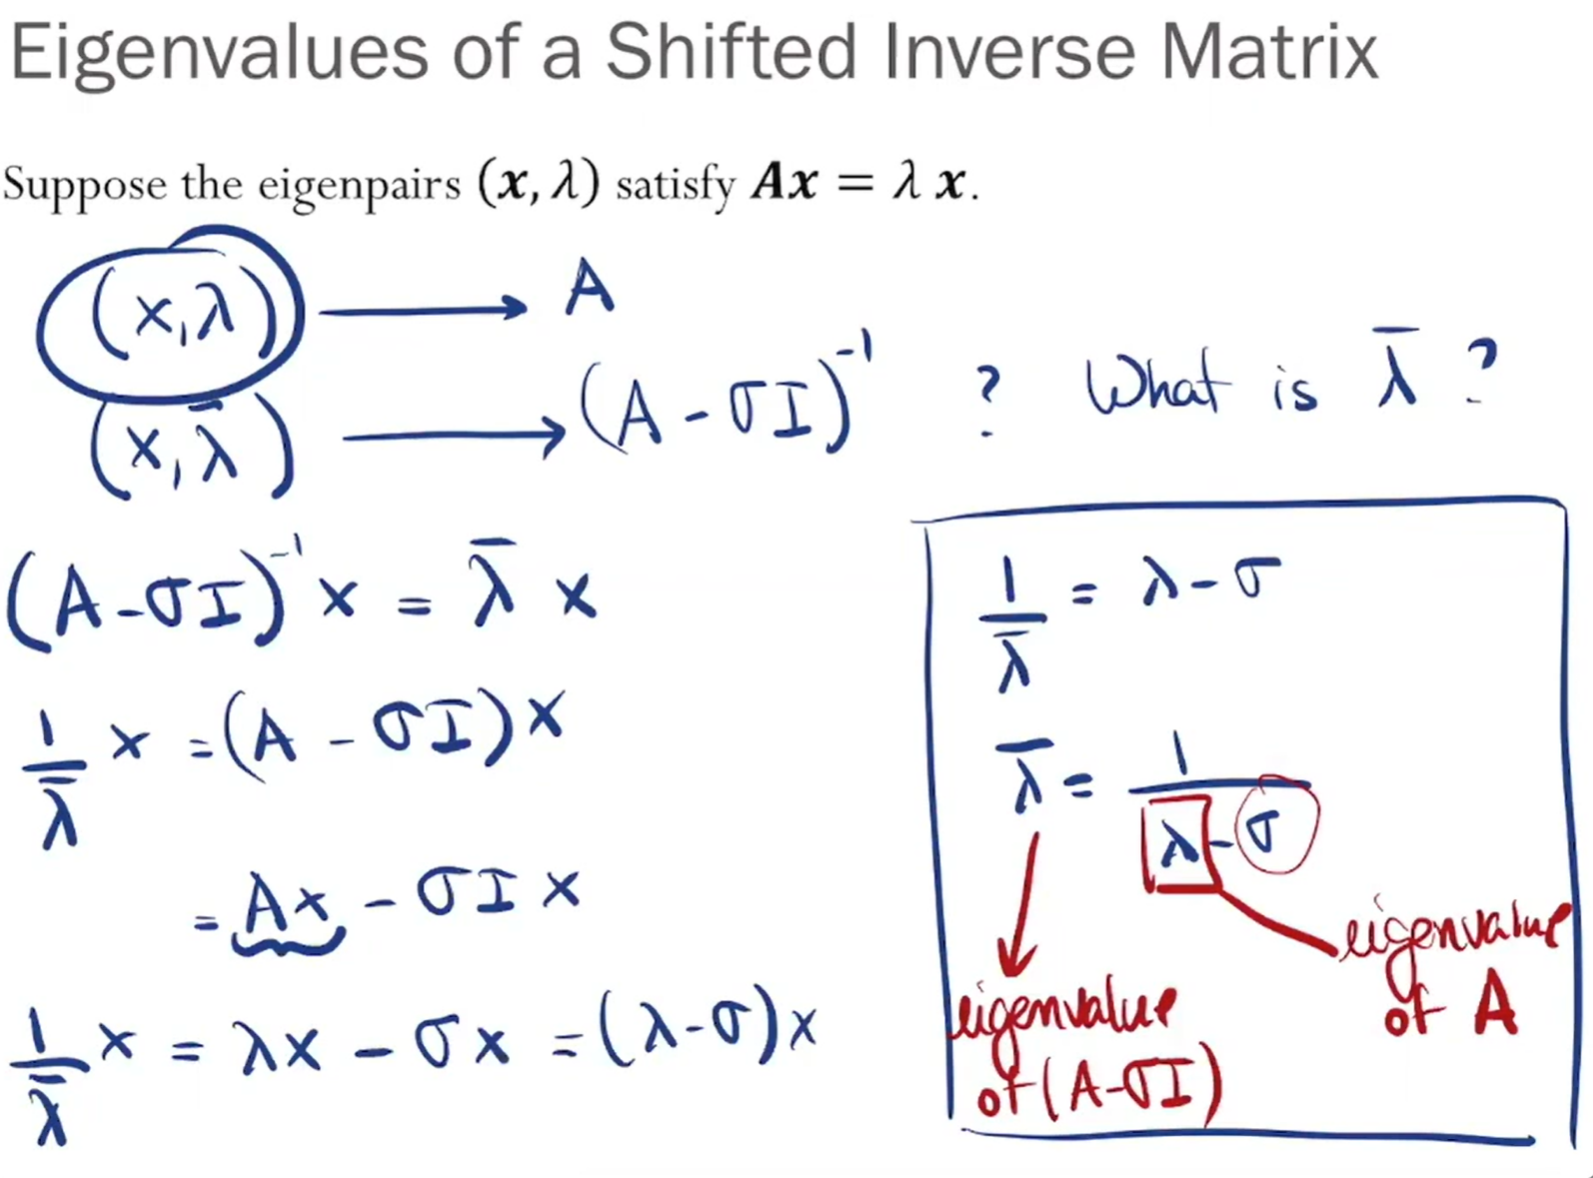 Eigenvalues of a Shifted Inverse Matrix
Suppose the eigenpairs (x, λ) satisfy Ax = λ x.
(x, λ) → A
(x, λ̄) → (A - σI)⁻¹ ? What is λ̄ ?
(A - σI)⁻¹ x = λ̄ x
1/λ̄ x = (A - σI) x
= Ax - σI x
1/λ̄ x = λx - σx = (λ-σ)x
1/λ̄ = λ - σ
λ̄ = 1/(λ - σ)
eigenvalue
of A
eigenvalue
of (A-σI)